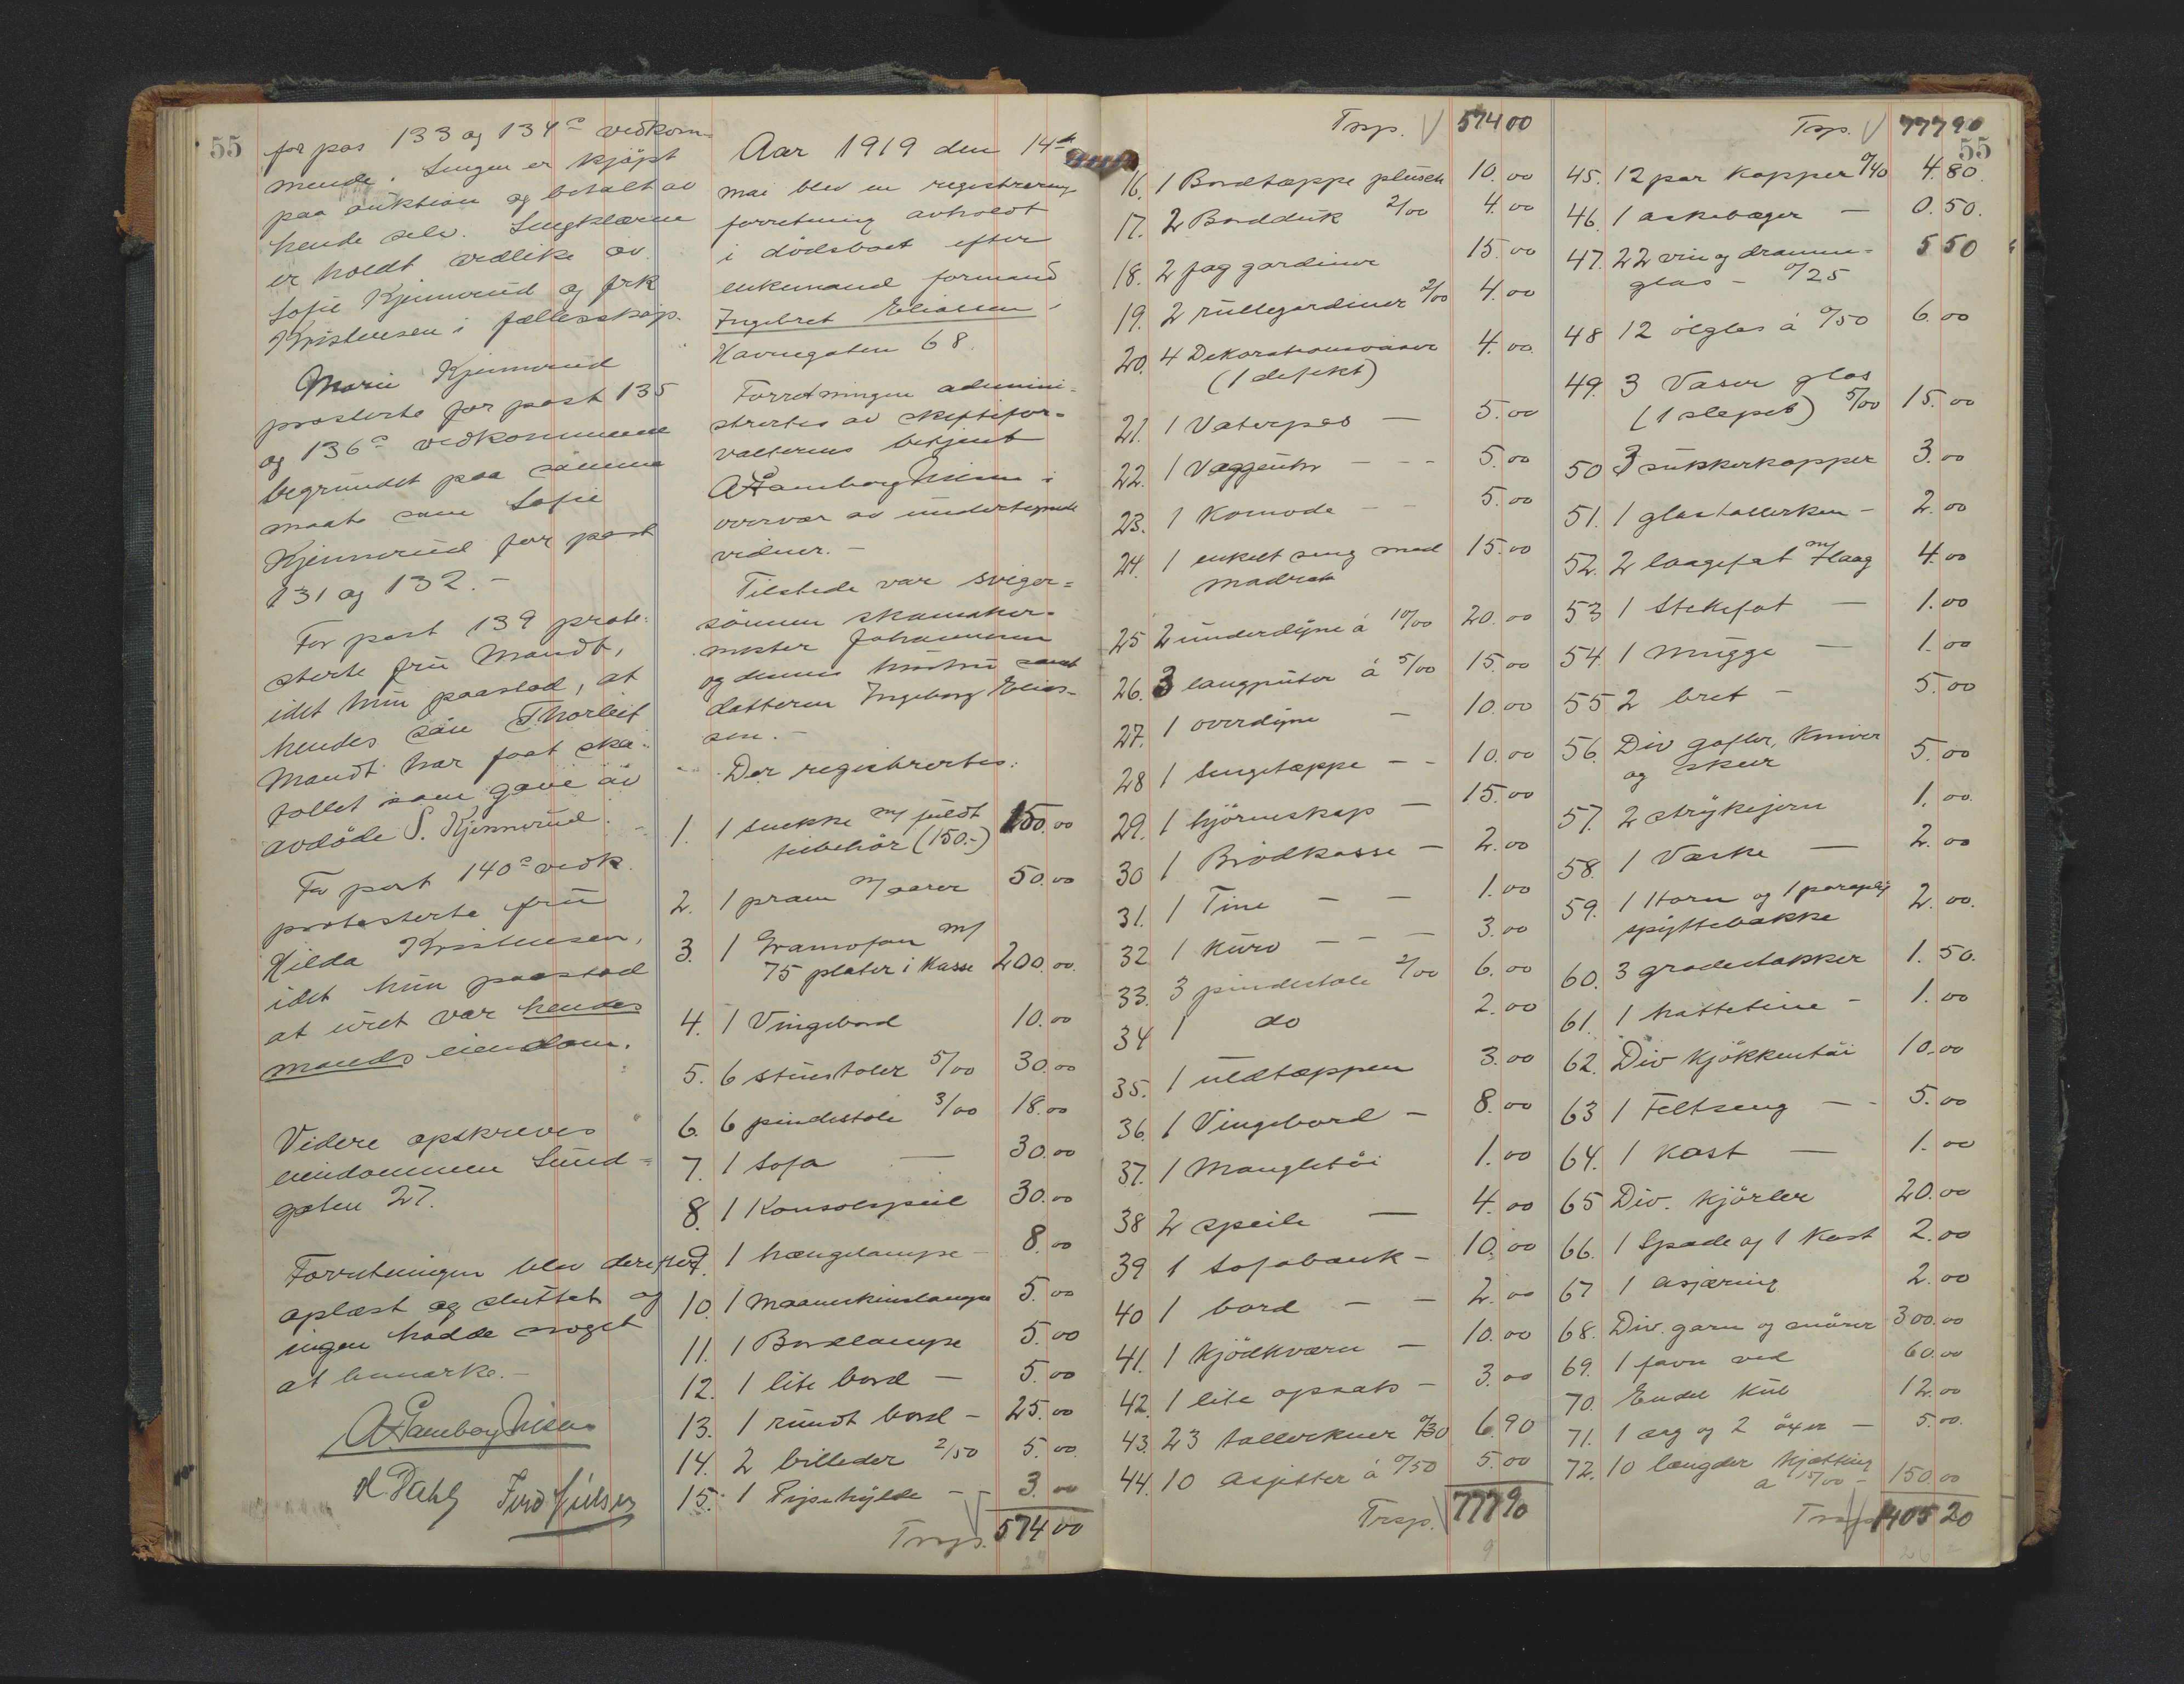 55
for pos 133 og 134 vedkom-
mende. Sengen er kjöpt
paa auktion og betalt av
hende selv. Sengklærne
er holdt vedlike av
Sofie Kjennerud og frk
Kristensen i fællesskap.
Marie Kjennerud
protesterte for post 135
og 136 vedkommende
begrundet paa samme
maate som Sofie
Kjennerud for post
131 og 132.-
For post 139 prote-
sterte fru Mandt,
idet hun paastod, at
hendes sön Thorleif
Mandt har faat ska-
tollet som gave av
avdöde S. Kjennerud.
For post 140 vedk.
protesterte fru
Hilda Kristensen,
idet hun paastod
at uret var hendes
mands eiendom.
Videre opskreves
eiendommen Sund-
gaten 27.
Forretningen blev derefter
oplæst og sluttet og
ingen hadde noget
at bemærke.-
H Dahl
Aar 1919 den 14de
mai blev en registrerings
forretning avholdt
i dödsboet efter
enkemand formand
Ingebret Eliassen,
Havnegaten 68.
Forretningen admini-
strertes av skiftefor-
valterens betjent
i
overvær av undertegnede
vidner.-
Tilstede var sviger-
sönnen skomaker-
mester Johannessen
og dennes hustru samt
datteren Ingeborg Elias-
sen.-
Der registrertes:
1. 1 snekke m/ fuldt
tilbehör (150.-) 150.00
2. 1 pram m/ aarer 50.00
3. 1 Gramofon m/
75 plater i kasse 200.00
4. 1 Vingebord 10.00
5. 6 stuestoler 5/00 30.00
6. 6 pindestole 3/00 18.00
7. 1 Sofa — 30.00
8. 1 Konsolspeil 30.00
9. 1 hængelampe - 8.00
10. 1 Maaneskinslampe 5.00
11. 1 Bordlampe 5.00
12. 1 lite bord — 5.00
13. 1 rundt bord - 25.00
14. 2 billeder 2/50 5.00
15. 1 Pipehylde - 3.00
Trsp. 574 00
Trsp. 574 00
16. 1 Bordtæppe plüsch 10.00
17. 2 Bordduk 2/00 4.00
18. 2 fag gardiner 15.00
19. 2 rullegardiner 2/00 4.00
20. 4 Dekorationsvaser 4.00
(1 defekt)
21. 1 Vaterpas — 5.00
22. 1 Væggeuhr - - - 5.00
23. 1 Komode - - 5.00
24. 1 enkelt seng med 15.00
madras
25 2 underdyne á 10/00 20.00
26. 3 langputer á 5/00 15.00
27. 1 overdyne - 10.00
28 1 Sengetæppe - - 10.00
29. 1 hjörneskap — 15.00
30 1 Brödkasse - 2.00
31. 1 Tine - - 1.00
32 1 Kurv - - - 3.00
33. 3 pindestole 2/00 6.00
34 1 do 2.00
35. 1 uldtæppen 3.00
36. 1 Vingebord - 8.00
37. 1 Mangletöi 1.00
38 2 speile — 4.00
39 1 Sofabænk - 10.00
40 1 bord - - 2.00
41. 1 Kjödkværn - 10.00
42. 1 lite opsats - 3.00
43. 23 tallerkner 0/30 6.90
44. 10 asjetter á 0/50 5.00
Trsp. 777 90
Trsp. 777 90
55
45. 12 par kopper 0/40 4.80
46. 1 askebæger — 0.50
47. 22 vin og dramme-
glas - 0/25 5 50
48 12 ölglas á 0/50 6.00
49. 3 Vaser glas
(1 slepet) 5/00 15.00
50 3 sukkerkopper 3.00
51. 1 glastallerken - 2.00
52. 2 laagefat m/laag 4.00
53 1 Stekefat — 1.00
54. 1 mugge — 1.00
55 2 bret - 5.00
56. Div gafler, kniver
og skeer 5.00
57. 2 strykejern 1.00
58. 1 Vaske — 2.00
59. 1 Horn og 1 paraply
spyttebakke 2.00
60. 3 grodestakker 1.50
61. 1 hattetine - 1.00
62. Div Kjökkentöi 10.00
63 1 Feltseng - - 5.00
64. 1 Kost — 1.00
65 Div. kjörler 20.00
66. 1 Spade og 1 Kost 2.00
67 1 2.00
68. Div. garn og snörer 300.00
69. 1 favn ved 60.00
70. Endel Kul 12.00
71. 1 sag og 2 öxer — 5.00
72. 10 længder kjætting
a 15/00 - 150.00
Trsp. 1405 20